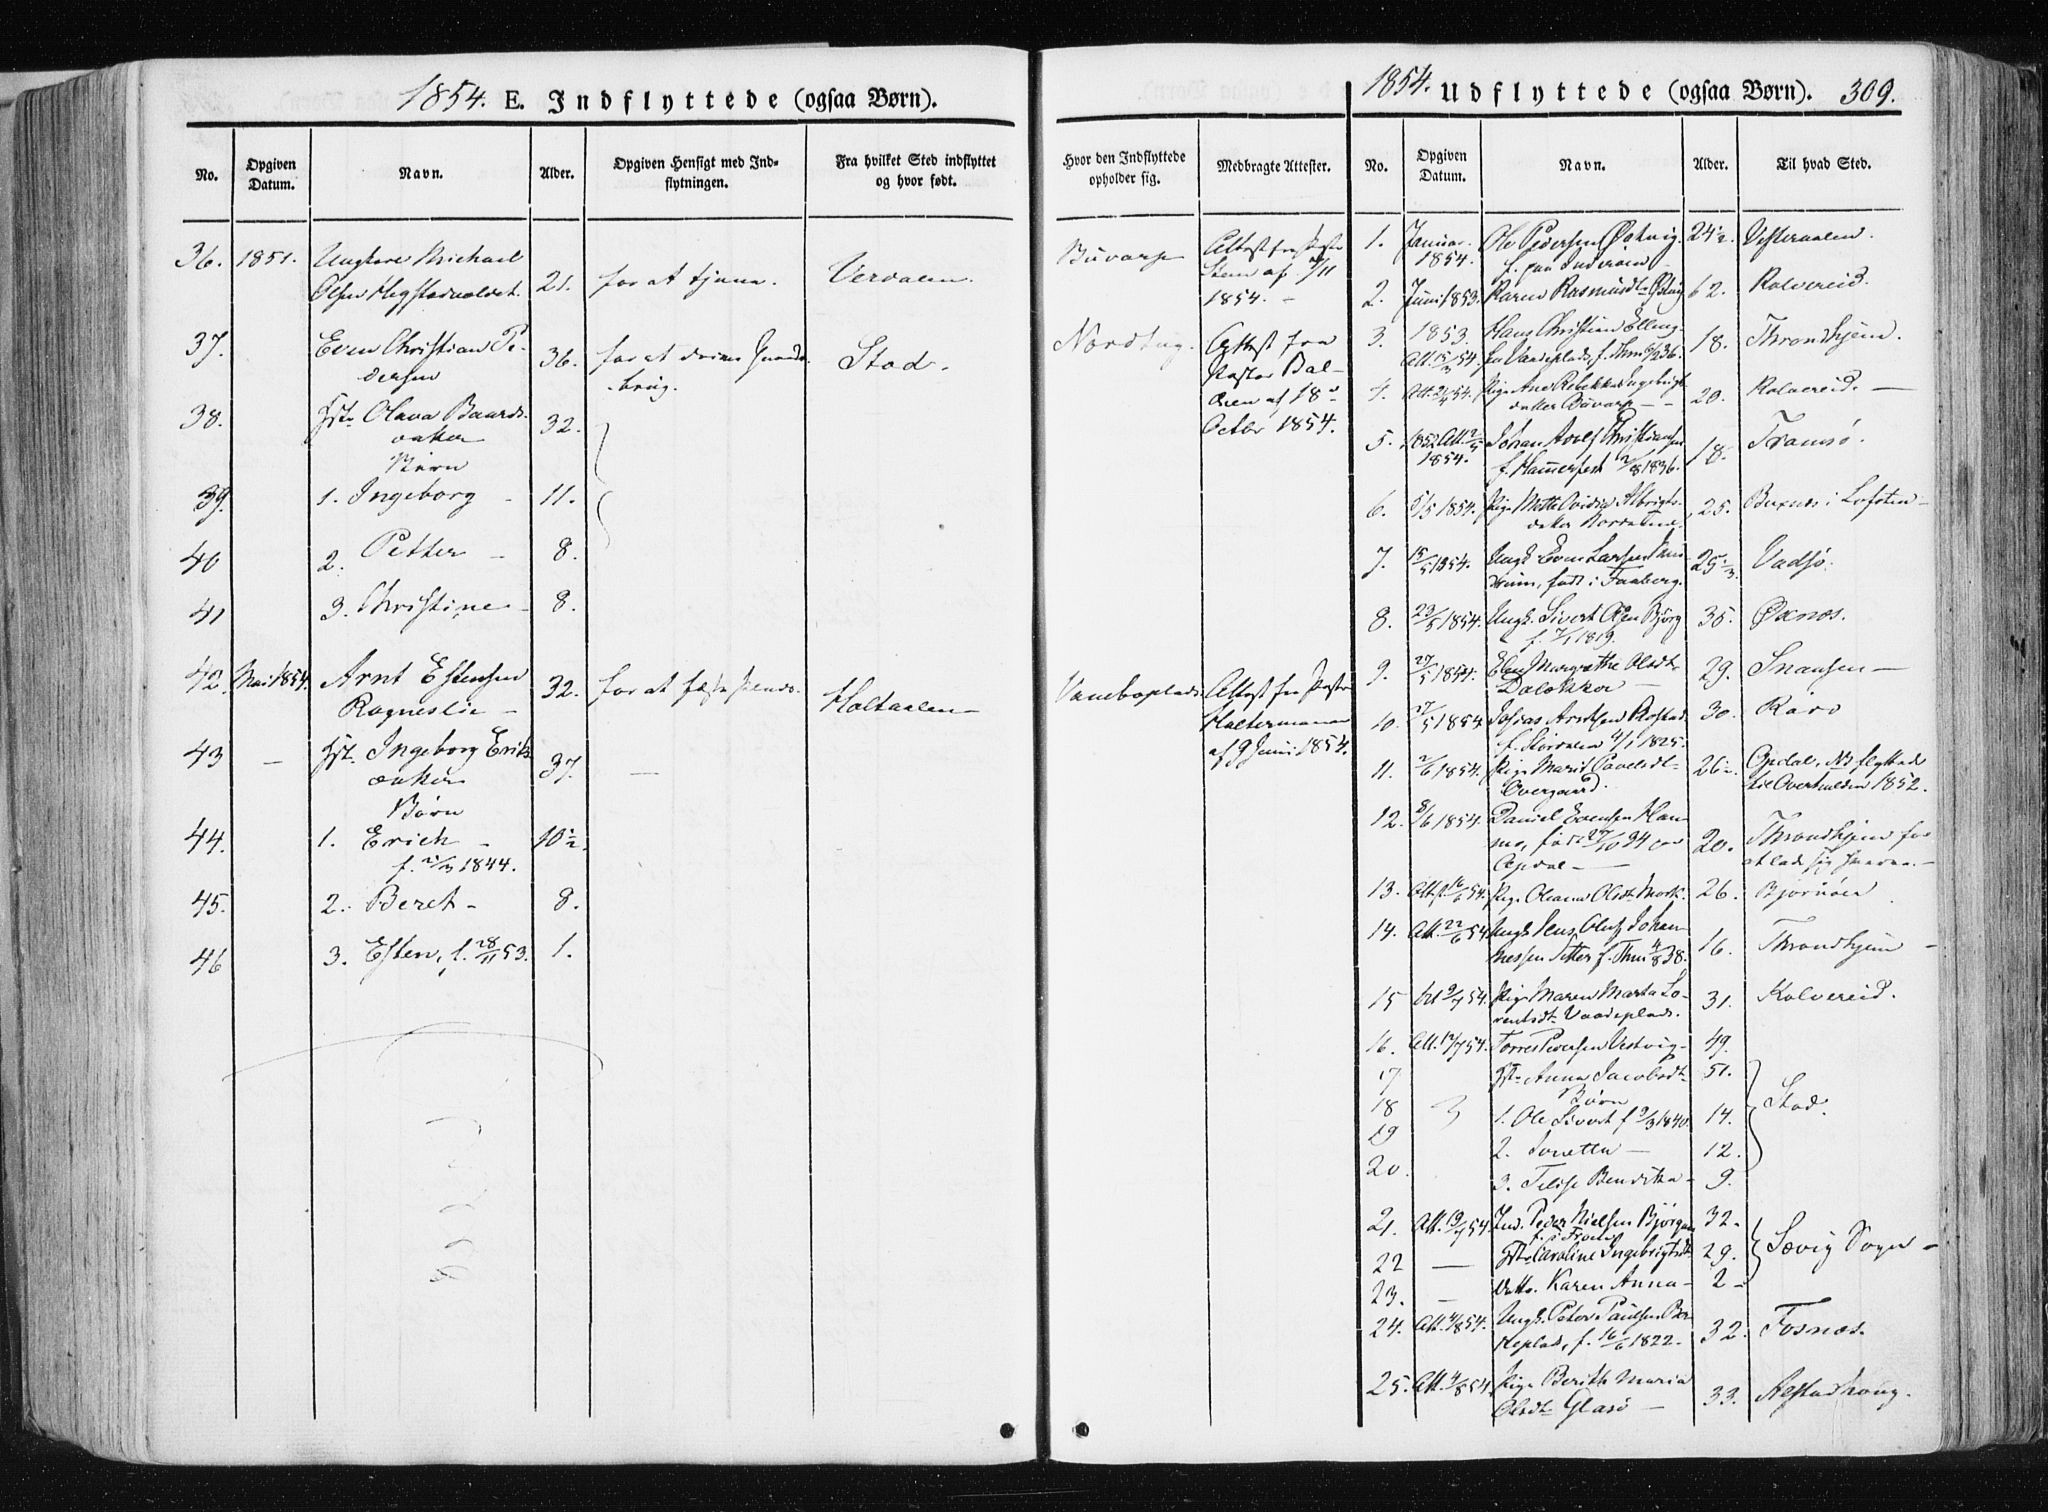 1854. E. Indflyttede (ogsaa Børn).
No.
Opgiven Datum.
Navn.
Alder.
Opgiven Hensigt med Ind-
flytningen.
Fra hvilket Sted indflyttet
og hvor født.
Hvor den Indflyttede
opholder sig.
Medbragte Attester.
36. 1851. Ungkarl Michael
Olsen 21. for at tjene. Verdalen. Buvarp Attest fra
1854.
37. Even Christian Pe-
dersen 36. for at drive
brug. Stod. Nordtug. Attest fra
Pastor Bal-
af 18
Octbr 1854.
38. Hst. Olava Baards
datter 32.
Børn
39. 1. Ingeborg - 11.
40 2. Petter - 8.
41 3. Christine - 8.
42. Mai 1854. Arnt Estensen
Rogneslie - 32. for at fæste Holtaalen Attest fra Pastor
Holtermann
af 9 Juni 1854.
43 - Hst. Ingeborg Eriks
datter 37. -
Børn
44. 1. Erich - 10½.
1844.
45. 2. Beret - 8.
46 3. Esten, f. 28/11 53. 1.
1854. Udflyttede (ogsaa Børn). 309.
No.
Opgiven Datum.
Navn.
Alder.
Til hvad Sted.
1. Januar 1854. Ole Pedersen Østvig 24½ Vesteraalen.
f. paa Inderøen
2. Juni 1853. Karen Rasmusdt Østvig 62. Kolvereid.
3. 1853. Hans Christian Elling- 18. Throndhjem.
Att. 15/3 54.
4. Pige Ane Rebekka Ingebrigt-
datter Buvarp - 20. Kolvereid. -
5. 1852 Att. 2/5 1854. Johan Adolf Christiansen
f. Hammerfest 2/8 1836. 18. Tromsø.
6. 5/5 1854. Pige Mette Albrigts-
datter 25. Buxnes i Lofoten -
7. 15/5 1854. Ungk. Even Larsen
født i Faaberg. 25 Vadsø.
8. 23/5 1854. Ungk. Sivert Olsen Bjørg 35. Øxnes.
f. 7/1 1819.
9. 27/5 1854. Elen Margrethe Olsdt 29. Snaasen -
10. 27/5 1854 Josias Arntsen Rostad 30. Rørø
f. Størdalen 4/1 1825.
11. 2/6 1854. Pige Marit Pavelsdt- 26½ Opdal. NB flyttede
Overgaard. til Overhalden 1852.
12. 8/6 1854. Daniel Evensen Ham-
mo, 20. Throndhjem for
Opdal -
13. Attst 16/6 54. Pige Oleana Olsdt Mork. 26. Bjørnøen
14. Att. 22/6 54 Ungk. Jens Oluf Johan-
nessen Sitter f. Thm 4/8 38. 16. Throndhjem -
15 9/7 54. Pige Maren Marta Lo-
rentsdt Vaadeplads. 31. Kolvereid.
16. Att. 12/7 54. Torres Pedersen Vestvig - 49.
17 Hst. Anna Jacobsdt- 51.
Børn
18 1. Ole Sivert f 9/3 1840. 14. Stod.
19 2. Jonetta - 12.
20. 3. Benedikta - 9.
21. Att. 19/7 54 Ind. Peder Nielsen Bjørgan 32.
22 - Hst Caroline Ingebrigtsdt 29. Sogn -
23. - Datter Karen Anna - 2 -
24. Att. 4/8 54. Ungk. Peter Paulsen Bar-
keplads, f. 16/6 1822. 32. Fosnæs.
25. Att. 9/8 54. Pige Berith Maria
Olsdt Glasø - 33. Alstadhoug.